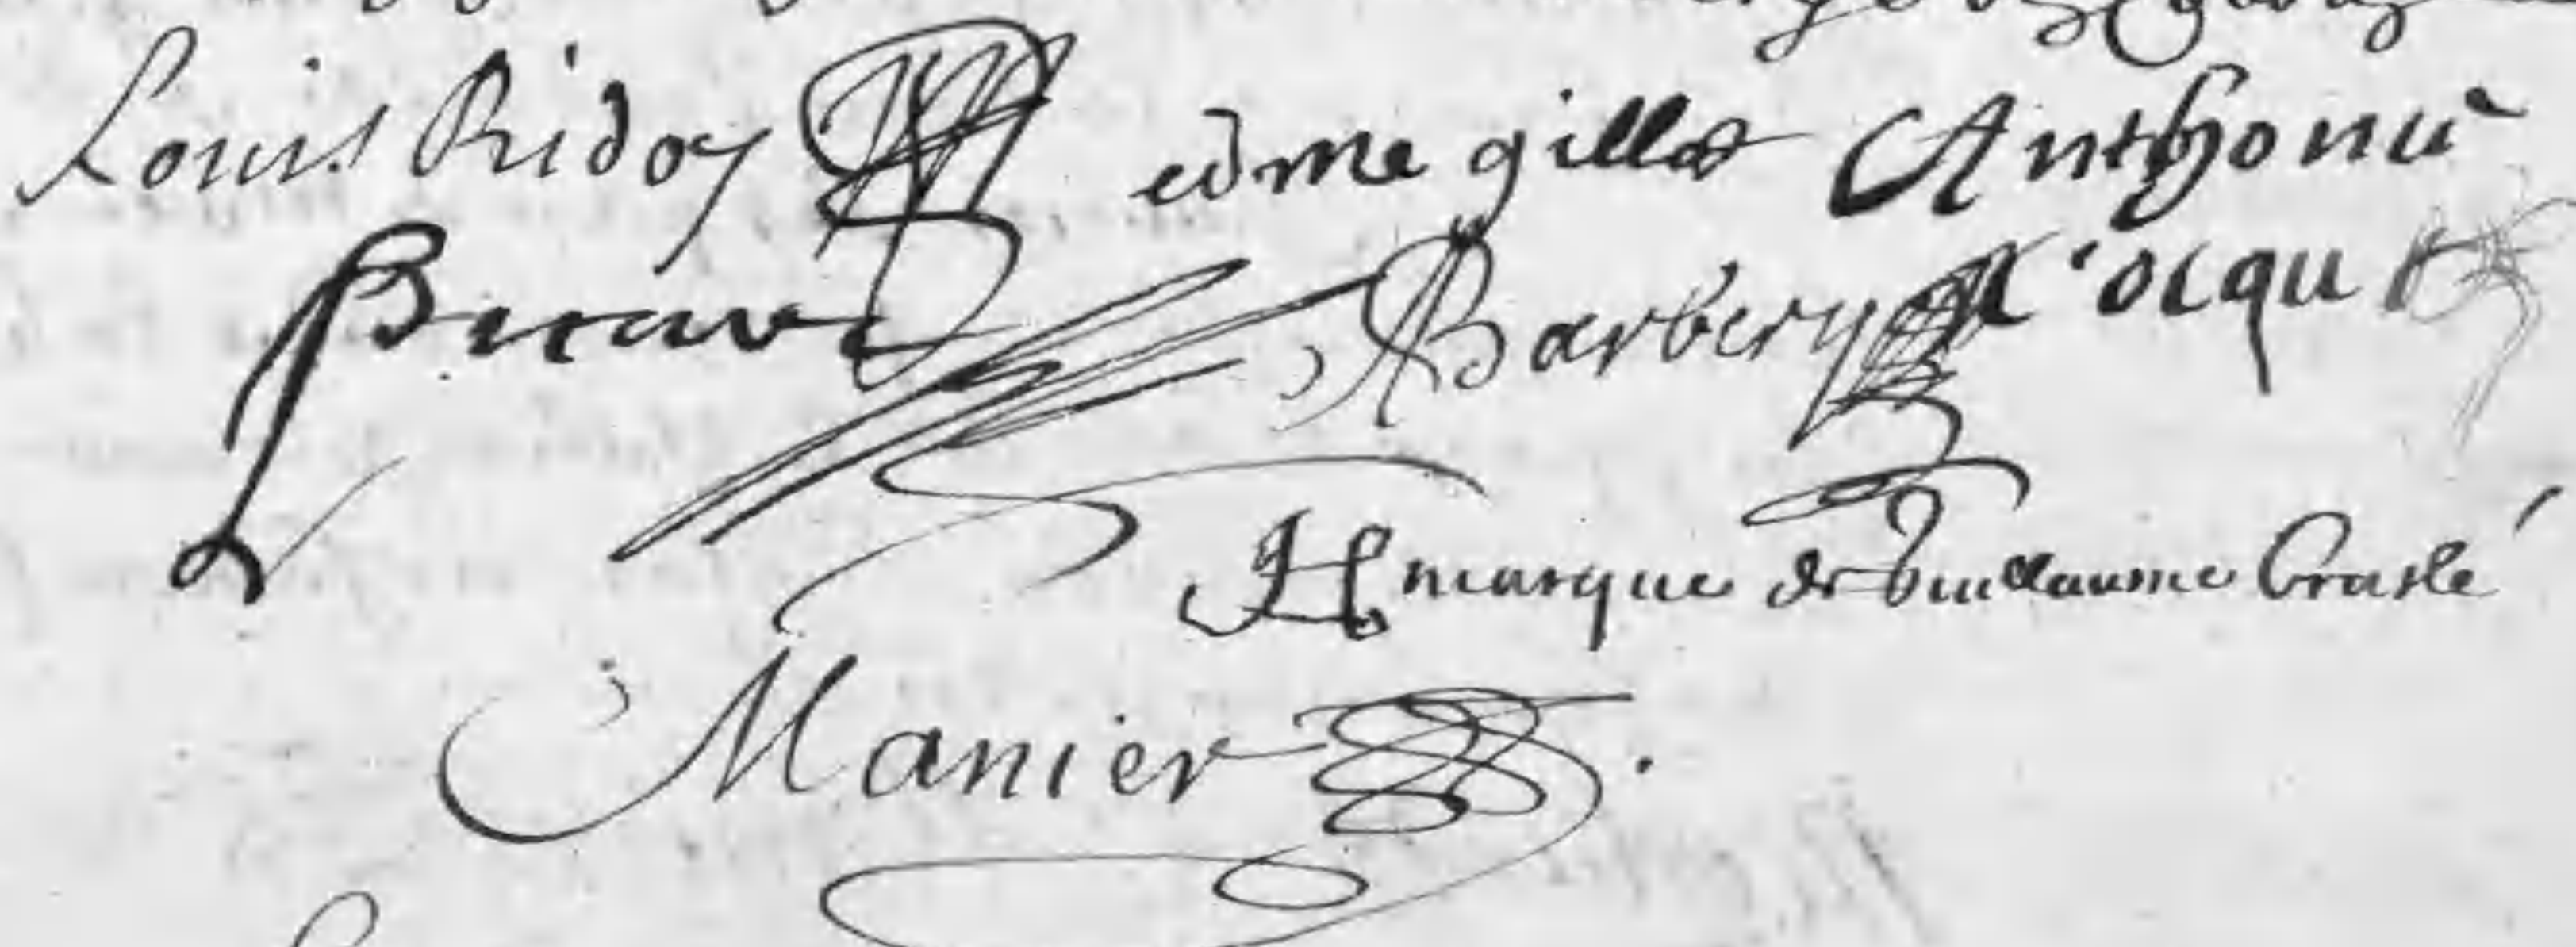 Louis Ridoy edme gillot Anthonu
Barbery L'ocqu
marque de Guillaume Crasle
Manier